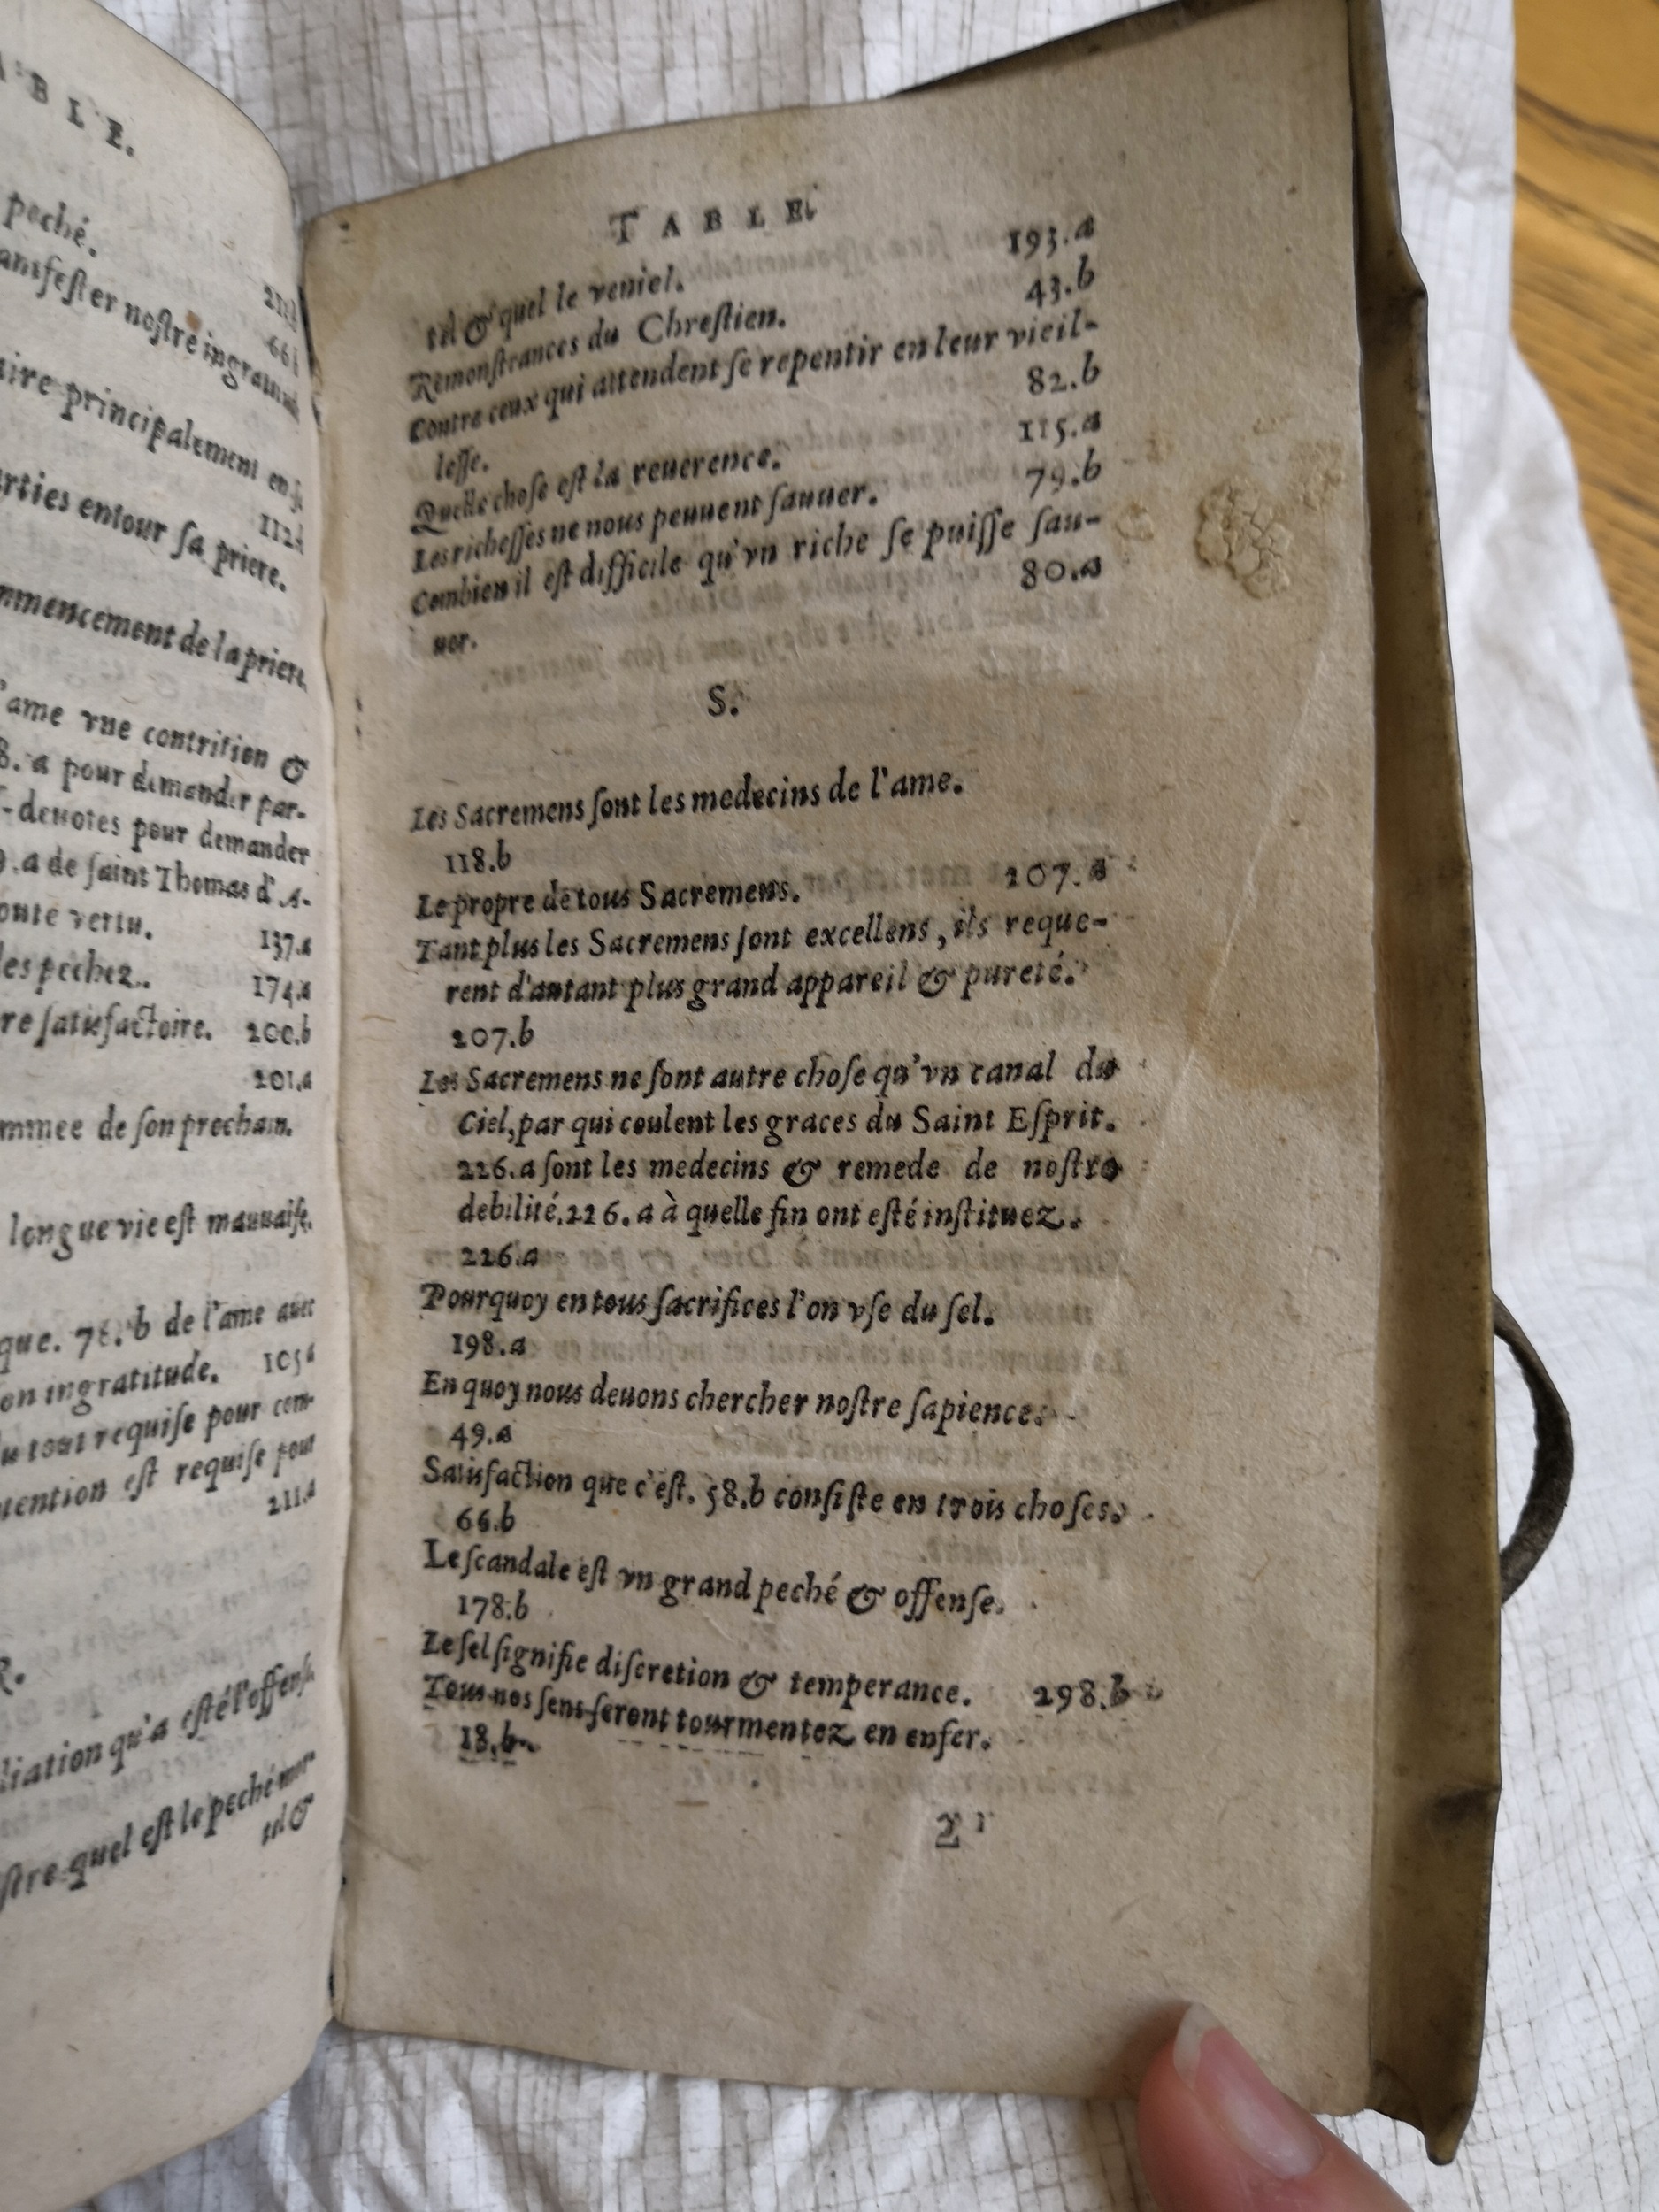 peché.
nostre ingratitud
ire principalement en
112.
rties entour sa priere.
mmencement de la priere
l'ame vne contrition &
8. a pour demander par-
-deuotes pour demander
9.a de saint Thomas d'A-
oute vertu. 137.a
les pechez. 174.a
re satisfactoire. 200.b
201.a
mmee de son prochain.
longue vie est mauuaise.
que. 78. b de l'ame auec
on ingratitude. 105
u tout requise pour com-
tention est requise pour
211.a
R.
liation qu'a esté l'offens
stre quel est le peché mor
tel &
TABLE.
tel & quel le veniel. 193.a
Remonstrances du Chrestien. 43.b
Contre ceux qui attendent se repentir en leur vieil-
lesse. 82.b
Quelle chose est la reuerence. 115.a
Les richesses ne nous peuuent sauuer. 79.b
Combien il est difficile qu'vn riche se puisse sau-
uer. 80.a
S.
Les Sacremens sont les medecins de l'ame.
118.b
Le propre de tous Sacremens. 207.a
Tant plus les Sacremens sont excellens, ils reque-
rent d'autant plus grand appareil & pureté.
207.b
Les Sacremens ne sont autre chose qu'vn canal du
Ciel, par qui coulent les graces du Saint Esprit.
226.a sont les medecins & remede de nostre
debilité. 226. a à quelle fin ont esté instituez.
226.a
Pourquoy en tous sacrifices l'on vse du sel.
198.a
En quoy nous deuons chercher nostre sapience.
49.a
Satisfaction que c'est. 58.b consiste en trois choses.
66.b
Le scandale est vn grand peché & offense.
178.b
Le sel signifie discretion & temperance. 298.b
Tous nos sens seront tourmentez en enfer.
18.b